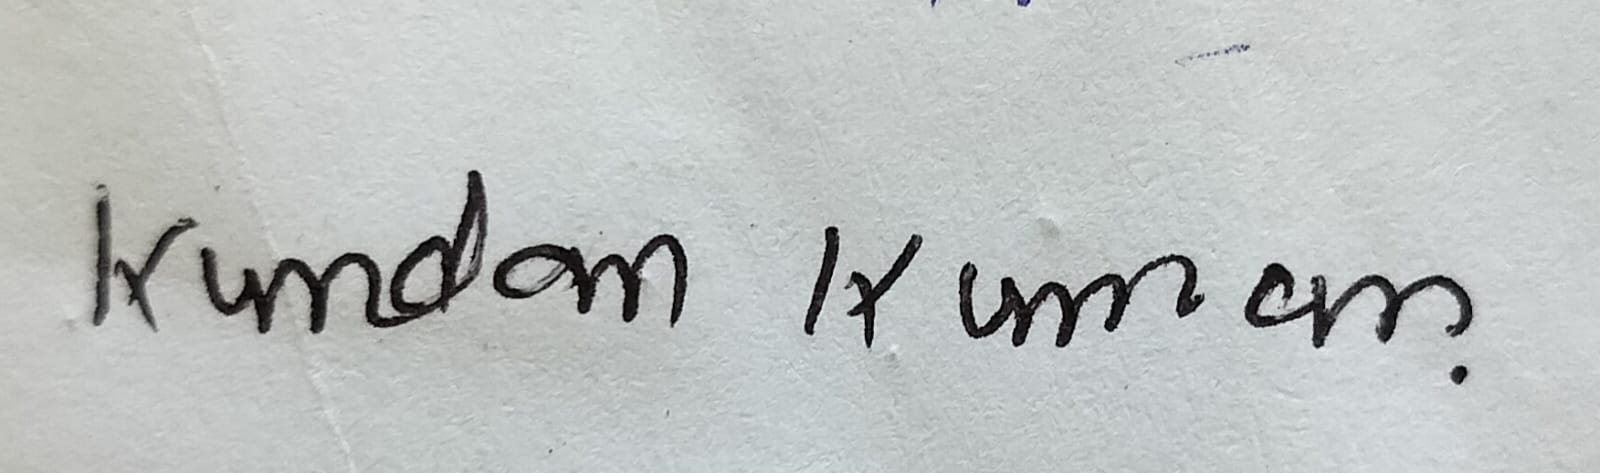 Kundan Kumar.